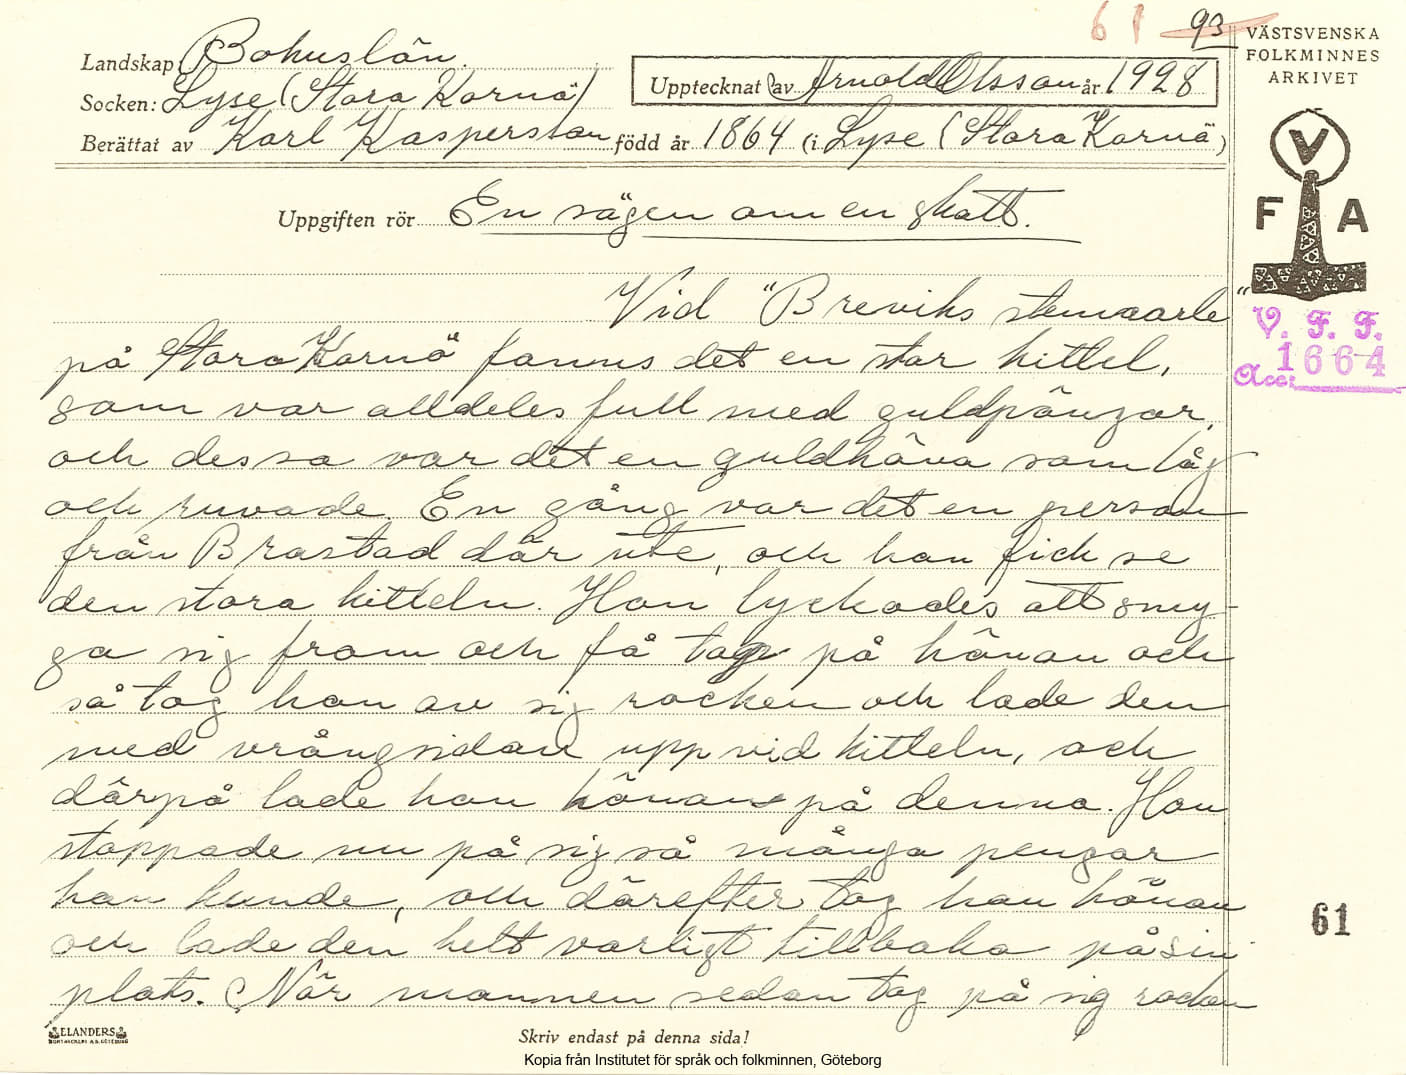 61 93
VÄSTSVENSKA
FOLKMINNES
ARKIVET
Landskap: Bohuslän.
Socken: Lyse (Stora Kornö)
Upptecknat av Arnold Olsson år 1928
Berättat av Karl Kaspersson född år 1864 (i Lyse (Stora Kornö)
V
F A
Uppgiften rör En sägen om en skatt.
Vid "Breviks stenaarle"
V. F. F.
Acc: 1664
på Stora Kornö fanns det en stor kittel,
som var alldeles full med guldpängar,
och dessa var det en guldhöna som låg
och ruvade. En gång var det en person
från Brastad där ute, och han fick se
den stora kitteln. Han lyckades att smy-
ga sig fram och få tag på hönan och
så tog han av sig rocken och lade den
med vrångsidan upp vid kitteln, och
därpå lade han hönan på denna. Han
stoppade nu på sig så många pengar
han kunde, och därefter tog han hönan
och lade den helt varligt tillbaka på sin
plats. När mannen sedan tog på sig rocken
61
ELANDERS
BOKTRYCKERI A.B. GÖTEBORG
Skriv endast på denna sida!
Kopia från Institutet för språk och folkminnen, Göteborg